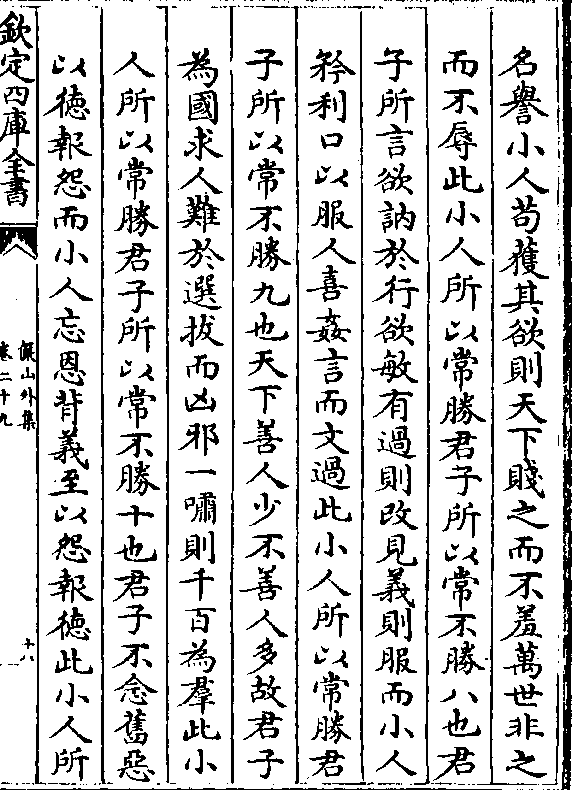 名譽小人苟獲其欲則天下賤之而不羞萬世非之
而不辱此小人所以常勝君子所以常不勝八也君
子所言欲訥於行欲敏有過則改見義則服而小人
矜利口以服人喜姦言而文過此小人所以常勝君
子所以常不勝九也天下善人少不善人多故君子
為國求人難於選拔而凶邪一嘯則千百為羣此小
人所以常勝君子所以常不勝十也君子不念舊惡
以徳報怨而小人忘恩背義至以怨報徳此小人所
欽定四庫全書
儼山外集
卷二十九
十八